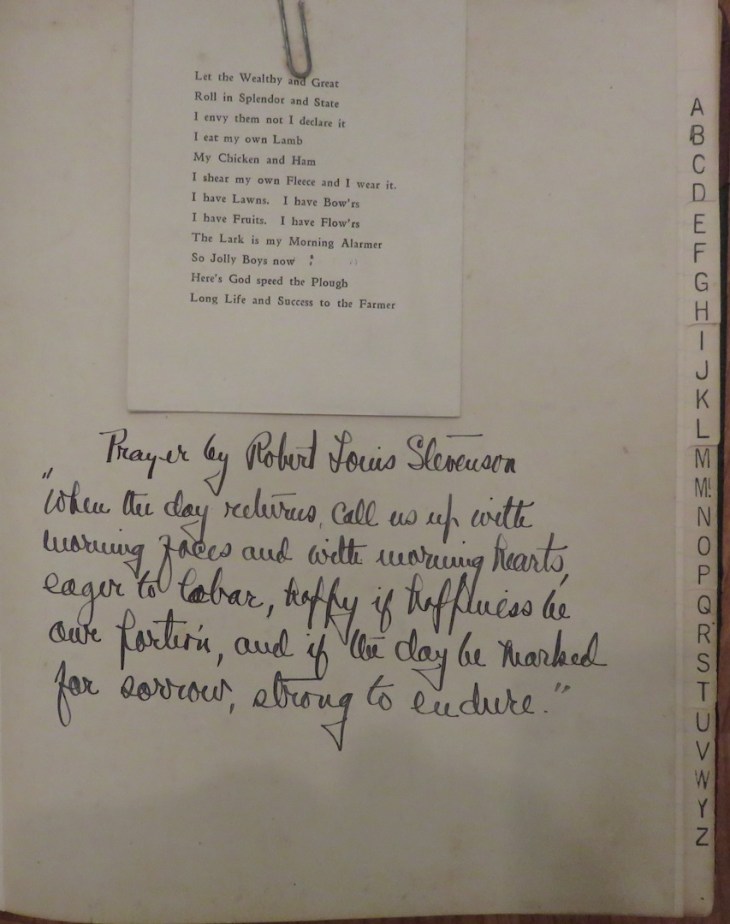 Let the Wealthy and Great
Roll in Splendor and State
I envy them not I declare it
I eat my own Lamb
My Chicken and Ham
I shear my own Fleece and I wear it.
I have Lawns. I have Bow'rs
I have Fruits. I have Flow'rs
The Lark is my Morning Alarmer
So Jolly Boys now
Here's God speed the Plough
Long Life and Success to the Farmer
Prayer by Robert Louis Stevenson
"When the day returns, call us up with
morning faces and with morning hearts,
eager to labor, happy if happiness be
our portion, and if the day be marked
for sorrow, strong to endure."
A
B
C
D
E
F
G
H
I
J
K
L
M
Mc
N
O
P
Q
R
S
T
U
V
W
Y
Z